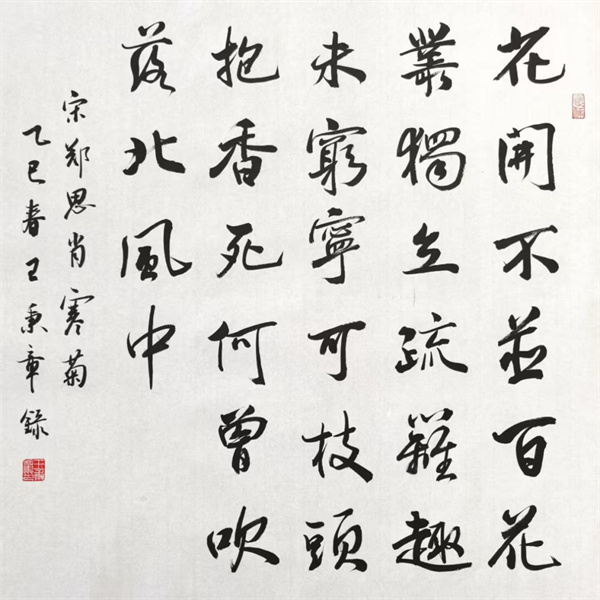 花開不並百花
叢獨立疏籬趣
未窮寧可枝頭
抱香死何曾吹
落北風中
宋郑思肖寒菊
乙巳春王秉章錄